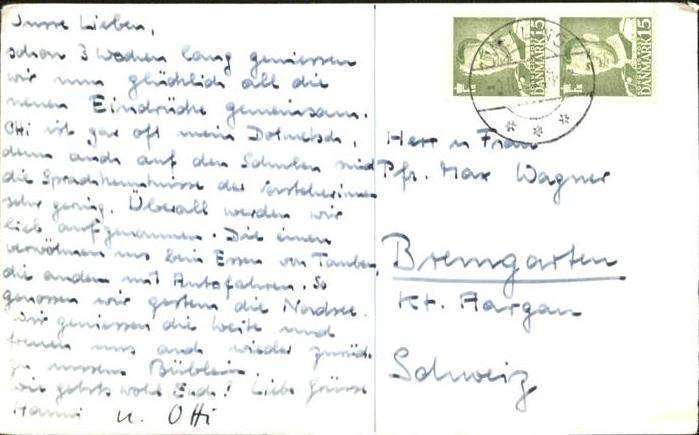 Unsre Lieben,
schon 3 Wochen lang geniessen
wir nun glücklich all die
neuen Eindrücke gemeinsam.
Otti ist gar oft mein Dolmetsch,
denn auch auf den Schulen sind
die Sprachkenntnisse der
sehr gering. Überall werden wir
lieb aufgenommen. Die einen
verwöhnen uns beim Essen von Tauben,
die andern mit Autofahren. So
genossen wir gestern die Nordsee.
Wir geniessen die Weite und
freuen uns auch wieder zurück
zu unserm Büblein
Wie gehts wohl Euch? Liebe Grüsse
Hanni u. Otti
DANMARK 15
DANMARK 15
Herr u Frau
Pfr. Max Wagner
Bremgarten
Kt. Aargau
Schweiz